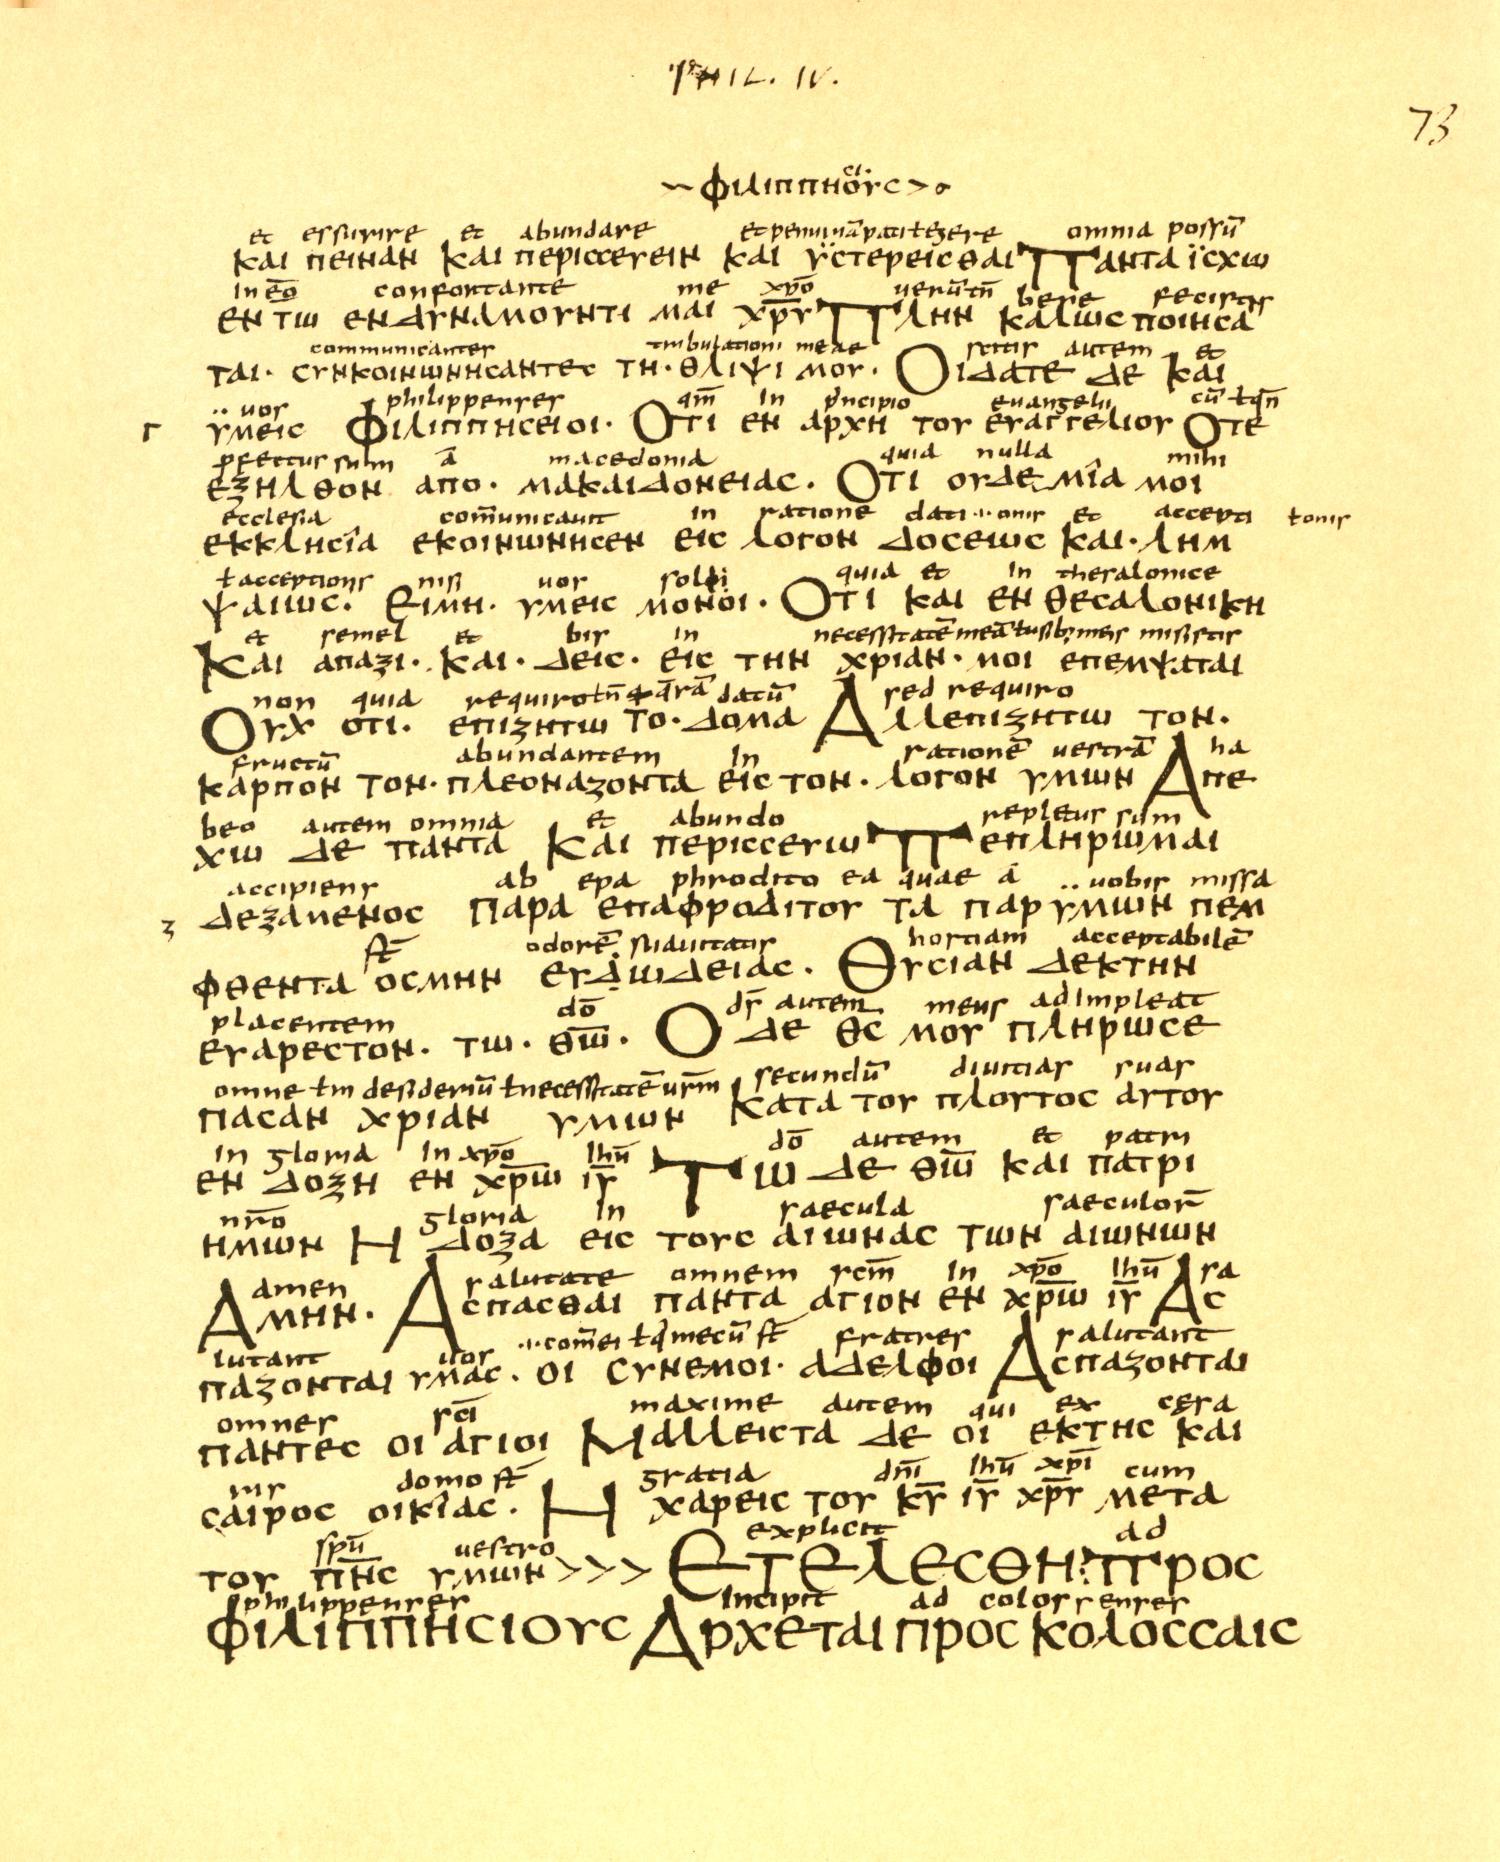 PHIL. IV.
73
ει.
~ ΦΙΛΙΠΠΗΟΥC >
et essurire et abundare et penuriā pati ł egere omnia possū
ΚΑΙ ΠΕΙΝΑΝ ΚΑΙ ΠΕΡΙCCΕΥΕΙΝ ΚΑΙ ΫCΤΕΡΕΙCΘΑΙ ΠΑΝΤΑ ΪCΧΙω
in eō confortante me xp̄o uerū tn̄ bene fecistis
ΕΝ Τω ΕΝΔΥΝΑΜΟΥΝΤΙ ΜΑΙ ΧΡ̅Υ̅ ΠΛΗΝ ΚΑΛωC ΠΟΙΗCΑ
communicantes tribulationi meae scitis autem et
ΤΑΙ· CΥΝΚΟΙΝωΝΗCΑΝΤΕC ΤΗ· ΘΛΙΨΙ ΜΟΥ· ΟΙΔΑΤΕ ΔΕ ΚΑΙ
.. uos philippenses qm̄ in principio euangelii cū ł qn̄
Γ ΥΜΕΙC ΦΙΛΙΠΠΗCΕΙΟΙ· ΟΤΙ ΕΝ ΑΡΧΗ ΤΟΥ ΕΥΑΓΓΕΛΙΟΥ ΟΤΕ
profectus sum ā macedonia quia nulla mihi
ΕΞΗΛΘΟΝ ΑΠΟ· ΜΑΚΑΙΔΟΝΕΙΑC· ΟΤΙ ΟΥΔΕΜΙΑ ΜΟΙ
ecclesia com̄unicauit in ratione dati ·· onis et accepti ł onis
ΕΚΚΛΗCΙΑ ΕΚΟΙΝωΝΗCΕΝ ΕΙC ΛΟΓΟΝ ΔΟCΕΙωC ΚΑΙ· ΛΗΜ
ł acceptionis nisi uos soli quia et in thesalonice
ΨΑΙωC· ΕΙΜΗ· ΥΜΕΙC ΜΟΝΟΙ· ΟΤΙ ΚΑΙ ΕΝ ΘΕCΑΛΟΝΙΚΗ
et semel et bis in necessitatē meā ł usib; meis misistis
ΚΑΙ ΑΠΑΞΙ· ΚΑΙ· ΔΕΙC· ΕΙC ΤΗΝ ΧΡΙΑΝ· ΜΟΙ ΕΠΕΜΨΑΤΑΙ
non quia requiro datū sed requiro
ΟΥΧ ΟΤΙ· ΕΠΙΖΗΤω ΤΟ· ΔΟΜΑ ΑΛΛΕΠΙΖΗΤω ΤΟΝ·
fructū abundantem in rationē uestrā ha
ΚΑΡΠΟΝ ΤΟΝ· ΠΛΕΟΝΑΖΟΝΤΑ ΕΙC ΤΟΝ· ΛΟΓΟΝ ΥΜωΝ ΑΠΕ
beo autem omnia et abundo repletus sum
Χω ΔΕ ΠΑΝΤΑ ΚΑΙ ΠΕΡΙCCΕΥω ΠΕΠΛΗΡωΜΑΙ
accipiens ab epa phrodito ea quae ā .. uobis missa
Ζ ΔΕΞΑΜΕΝΟC ΠΑΡΑ ΕΠΑΦΡΟΔΙΤΟΥ ΤΑ ΠΑΡ ΥΜωΝ ΠΕΜ
st̄ odorē suauitatis hostiam acceptabilē
ΦΘΕΝΤΑ ΟCΜΗΝ ΕΥΔωΔΕΙΑC· ΘΥCΙΑΝ ΔΕΚΤΗΝ
placentem dō ds̄ autem meus adimpleat
ΕΥΑΡΕCΤΟΝ· Τω· Θω̅· Ο ΔΕ ΘC ΜΟΥ ΠΛΗΡωCΕ
omne ł in desideriū ł necessitatē urm̄ secundū diuitias suas
ΠΑCΑΝ ΧΡΙΑΝ ΥΜωΝ ΚΑΤΑ ΤΟΥ ΠΛΟΥΤΟC ΑΥΤΟΥ
in gloria in xp̄o ihū dō autem et patri
ΕΝ ΔΟΞΗ ΕΝ ΧΡ̅ω̅ ΙΥ̅ Τω ΔΕ Θω̅ ΚΑΙ ΠΑΤΡΙ
nr̄o gloria in saecula saeculor̄
ΗΜωΝ Η ΔΟΞΑ ΕΙC ΤΟΥC ΑΙωΝΑC ΤωΝ ΑΙωΝωΝ
amen salutate omnem scm̄ in xp̄o ihū sa
ΑΜΗΝ· ΑCΠΑCΘΑΙ ΠΑΝΤΑ ΑΓΙΟΝ ΕΝ ΧΡ̅ω̅ ΙΥ̅ ΑC
lutant uos ·· com̄ei ł q̄ mecū st̄ fratres salutant
ΠΑΖΟΝΤΑΙ ΥΜΑC· ΟΙ CΥΝΕΜΟΙ· ΑΔΕΛΦΟΙ ΑCΠΑΖΟΝΤΑΙ
omnes scī maxime autem qui ex cesa
ΠΑΝΤΕC ΟΙ ΑΓΙΟΙ ΜΑΛΛΕΙCΤΑ ΔΕ ΟΙ ΕΚΤΗC ΚΑΙ
ris domo st̄ gratia dn̄i ihū xp̄i cum
CΑΙΡΟC ΟΙΚΙΑC· Η ΧΑΡΕΙC ΤΟΥ ΚΥ̅ ΙΥ̅ ΧΡ̅Υ̅ ΜΕΤΑ
spū uestro explicit ad
ΤΟΥ ΠΝ̅C ΥΜωΝ >>> ΕΤΕΛΕCΘΗ: ΠΡΟC
philippenses incipit ad colossenses
ΦΙΛΙΠΠΗCΙΟΥC ΑΡΧΕΤΑΙ ΠΡΟC ΚΟΛΟCCΑΙC